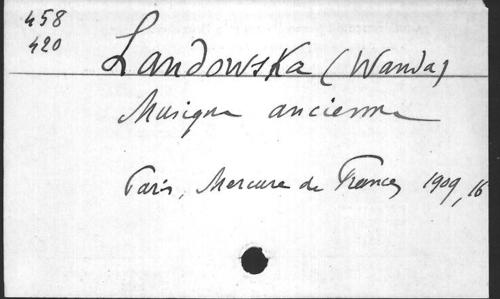 458
420
Landowska (Wanda)
Musique ancienne
Paris, Mercure de France, 1909, 16